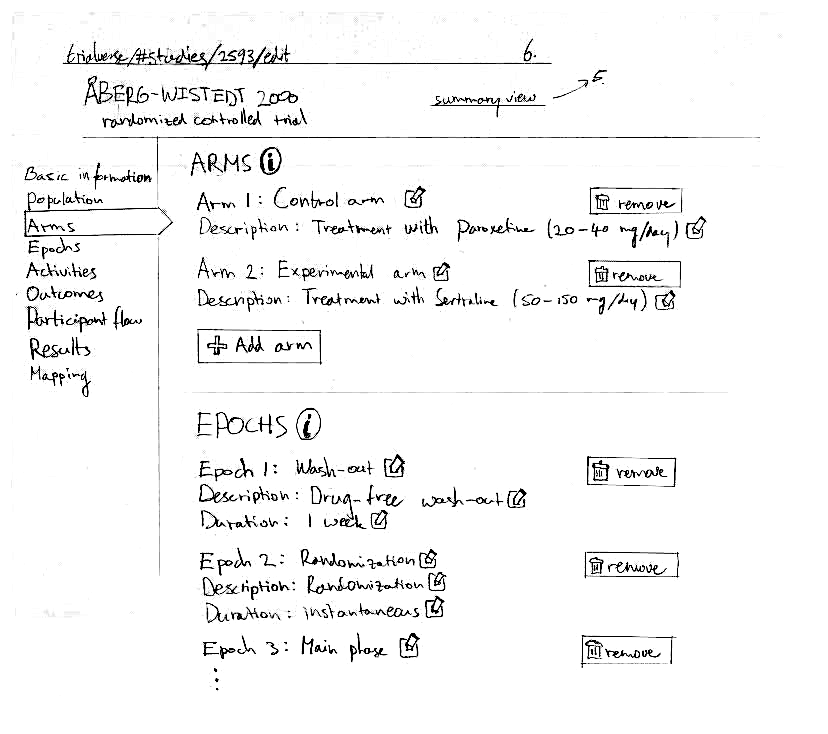 trialverse/#studies/2593/edit 6.
ÅBERG-WISTEDT 2000
randomized controlled trial
summary view 5.
Basic information
Population
Arms
Epochs
Activities
Outcomes
Participant flow
Results
Mapping
ARMS i
Arm 1: Control arm remove
Description: Treatment with Paroxetine (20-40 mg/day)
Arm 2: Experimental arm remove
Description: Treatment with Sertraline (50-150 mg/day)
+ Add arm
EPOCHS i
Epoch 1: Wash-out remove
Description: Drug-free wash-out
Duration: 1 week
Epoch 2: Randomization remove
Description: Randomization
Duration: instantaneous
Epoch 3: Main phase remove
⋮